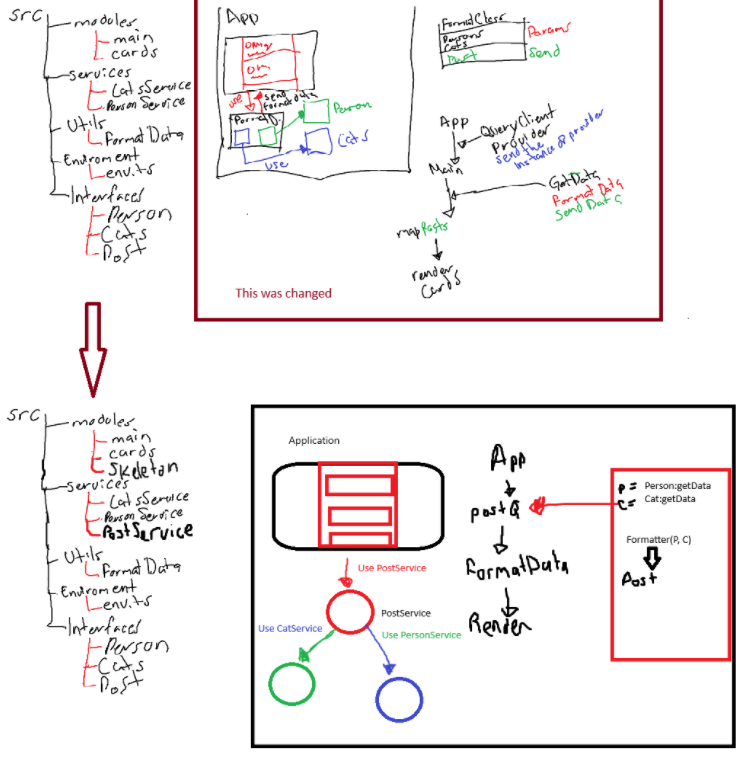 Src
modules
main
cards
services
CatsService
Person Service
Utils
Format Data
Enviroment
env.ts
Interfaces
Person
Cats
Post
App
use
send
format data
Person
Cats
use
FormatClass
Persons
Cats
Post
Params
Send
App
QueryClient
Provider
send the
instance of provider
Main
GetData
Format Data
Send Data
map Posts
render
Cards
This was changed
Src
modules
main
cards
Skeletan
services
CatsService
Person Service
PostService
Utils
Format Data
Enviroment
env.ts
Interfaces
Person
Cats
Post
Application
Use PostService
PostService
Use CatService
Use PersonService
App
postQ
FormatData
Render
P = Person:getData
C= Cat:getData
Formatter(P, C)
Post